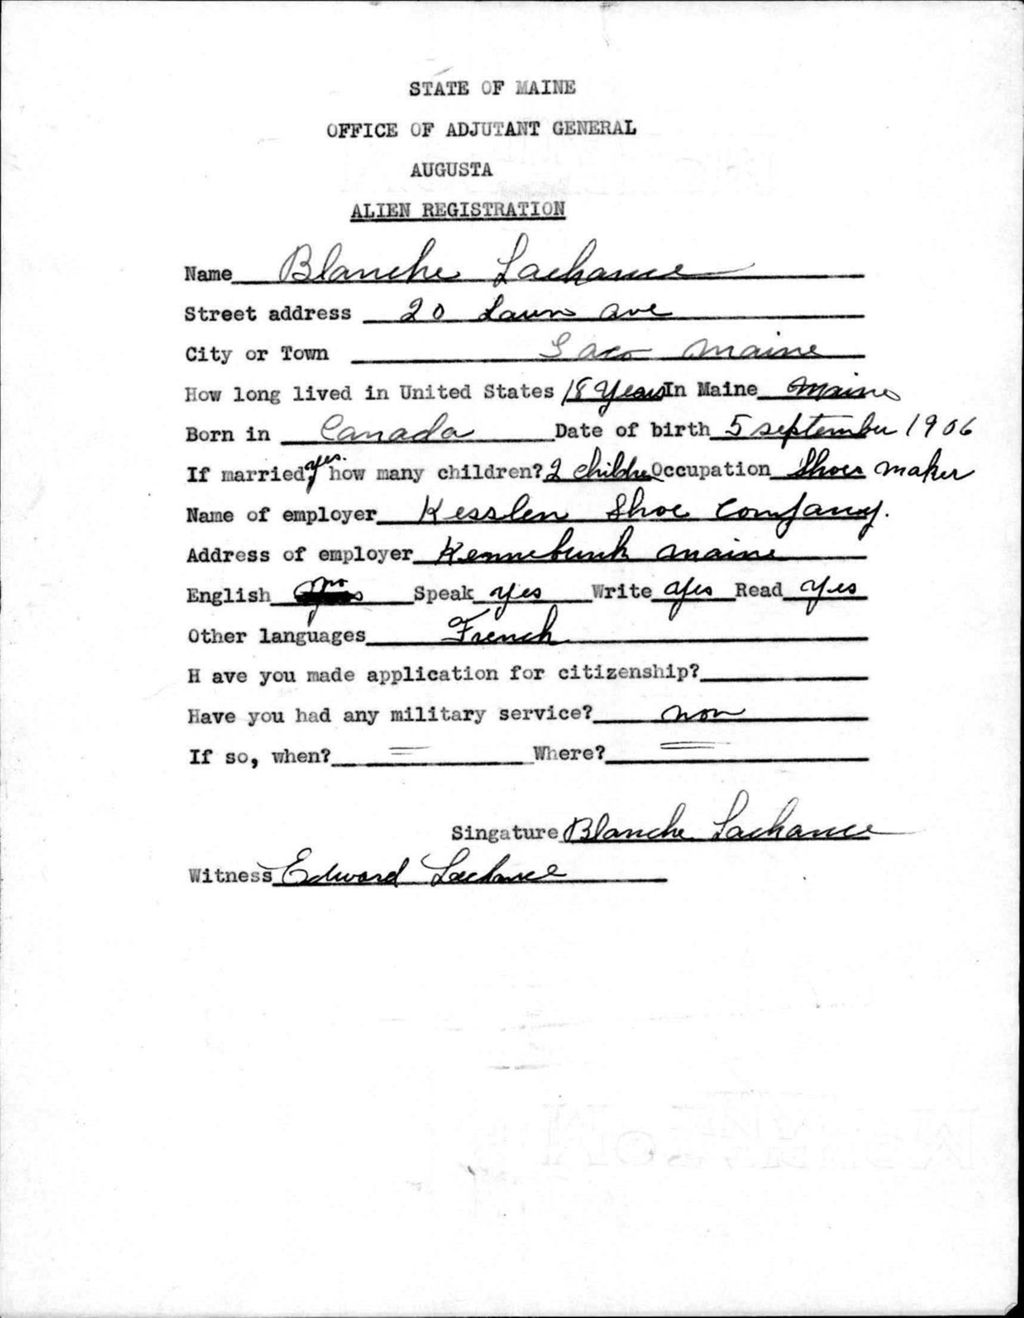 STATE OF MAINE
OFFICE OF ADJUTANT GENERAL
AUGUSTA
ALIEN REGISTRATION
Name Blanche Lachance
Street address 20 Lawn ave
City or Town Saco Maine
How long lived in United States 18 Years In Maine Maine
Born in Canada Date of birth 5 september 1906
If married, yes. how many children? 2 childre Occupation Shoes maker
Name of employer Kesslen Shoe Company.
Address of employer Kennebunk Maine
English no Speak yes Write yes Read yes
Other languages French
H ave you made application for citizenship?
Have you had any military service? non
If so, when? = Where? =
Singature Blanche Lachance
Witness Edward Lachance